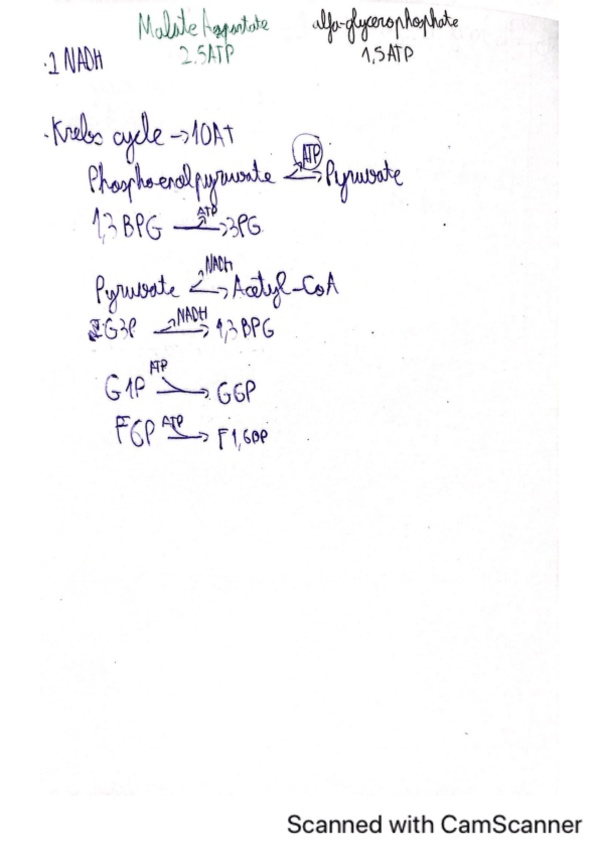 Malate Aspartate alfa-glycerophosphate
·1 NADH 2.5ATP 1,5ATP
·Krebs cycle → 10At
Phosphoenolpyruvate ATP → Pyruvate
1,3 BPG ATP → 3PG
Pyruvate NADH → Acetyl-CoA
G3P NADH → 1,3 BPG
G1P ATP → G6P
F6P ATP → F1,6BP
Scanned with CamScanner